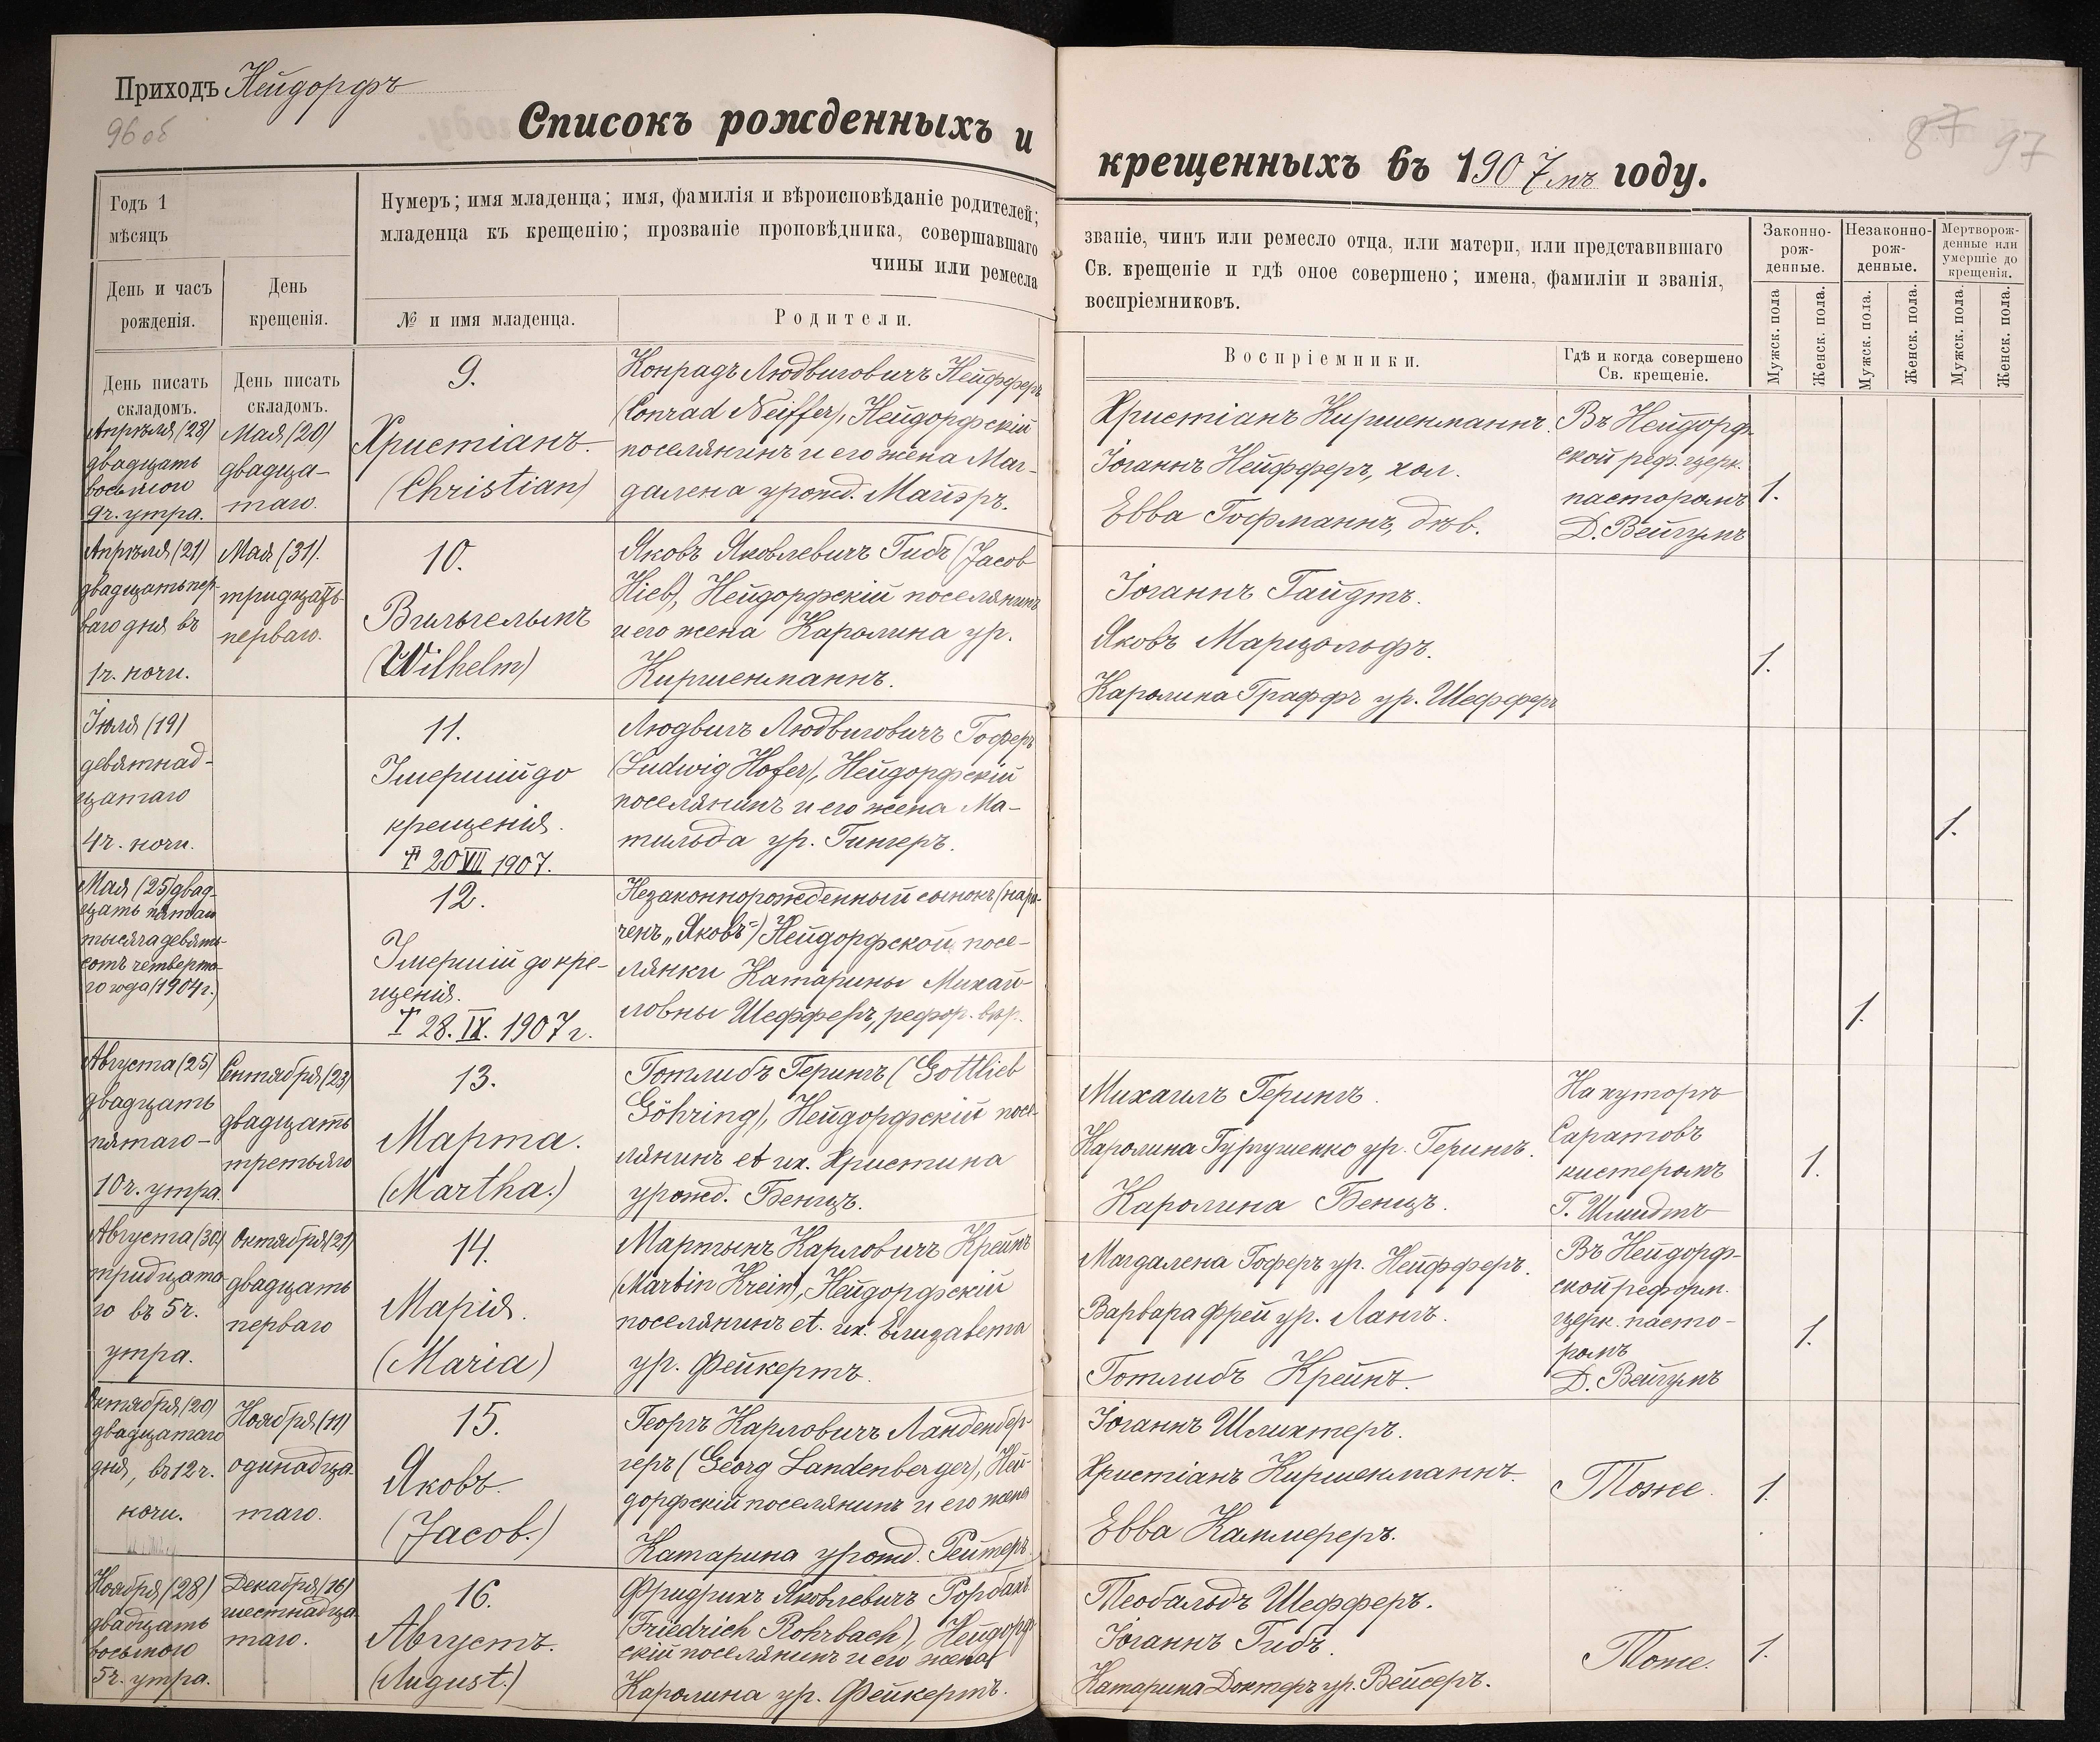 Приходъ Нейдорфъ
96 об
Списокъ рожденныхъ и
крещенныхъ въ 1907мъ году.
87 97
Годъ 1
мѣсяцъ
День и часъ
рожденія.
День
крещенія.
Нумеръ; имя младенца; имя, фамилія и вѣроисповѣданіе родителей;
младенца къ крещенію; прозваніе проповѣдника, совершавшаго
чины или ремесла
№ и имя младенца.
Родители.
званіе, чинъ или ремесло отца, или матери, или представившаго
Св. крещеніе и гдѣ оное совершено; имена, фамиліи и званія,
воспріемниковъ.
Воспріемники.
Гдѣ и когда совершено
Св. крещеніе.
Законно-
рож-
денные.
Незаконно-
рож-
денные.
Мертворож-
денные или
умершіе до
крещенія.
Мужск. пола
Женск. пола.
Мужск. пола.
Женск. пола.
Мужск. пола.
Женск. пола.
День писать
складомъ.
День писать
складомъ.
Апрѣля (28)
двадцать
восьмого
9ч. утра.
Мая (20)
двадца-
таго.
9.
Христіанъ.
(Christian)
Конрадъ Людвиговичъ Нейфферъ
(Conrad Neiffer), Нейдорфскій
поселянинъ и его жена Маг-
далена урожд. Майэръ.
Христіанъ Киршенманнъ.
Іоганнъ Нейфферъ, хол.
Евва Гофманнъ, дѣв.
Въ Нейдорф-
ской реф. церк.
пасторомъ
Д. Вейгумъ
1.
Апрѣля (21)
двадцать пер-
ваго дня въ
1ч. ночи.
Мая (31).
тридцать
перваго.
10.
Вильгельмъ
(Wilhelm)
Яковъ Яковлевичъ Гибъ (Jacob
Hieb), Нейдорфскій поселянинъ
и его жена Каролина ур.
Киршенманнъ.
Іоганнъ Гайдтъ.
Яковъ Марцольфъ.
Каролина Граффъ ур. Шефферъ
1.
Іюля (19)
девятнад-
цатаго
4ч. ночи.
11.
Умершій до
крещенія.
† 20 VII 1907.
Людвигъ Людвиговичъ Гоферъ
(Ludwig Hofer), Нейдорфскій
поселянинъ и его жена Ма-
тильда ур. Гингеръ.
1.
Мая (25) двад-
цать пятаго
тысяча девять-
сотъ четверта-
го года (1904 г.)
12.
Умершій до кре-
щенія.
† 28. IX. 1907 г.
Незаконнорожденный сынокъ (наре-
ченъ „Яковъ“) Нейдорфской посе-
лянки Катарины Михай-
ловны Шефферъ, рефор. вѣр.
1.
Августа (25)
двадцать
пятаго —
10ч. утра.
Сентября (23)
двадцать
третьяго
13.
Марта.
(Martha.)
Готлибъ Герингъ (Gottlieb
Göhring), Нейдорфскій посе-
лянинъ et ux. Христина
урожд. Бенцъ.
Михаилъ Герингъ.
Каролина Гургушенко ур. Герингъ.
Каролина Бенцъ.
На хуторѣ
Саратовъ
кистеромъ
Г. Шмидтъ
1.
Августа (30)
тридцата-
го въ 5ч.
утра.
Октября (21)
двадцать
перваго
14.
Марія.
(Maria)
Мартынъ Карловичъ Крейнъ
(Martin Krein), Нейдорфскій
поселянинъ et. ux. Елизавета
ур. Фейкертъ.
Магдалена Гоферъ ур. Нейфферъ.
Варвара Фрей ур. Лангъ.
Готлибъ Крейнъ.
Въ Нейдорф-
ской реформ.
церк. пасто-
ромъ
Д. Вейгумъ
1.
Октября (20)
двадцатаго
дня, въ 12ч.
ночи.
Ноября (11)
одинадца-
таго.
15.
Яковъ.
(Jacob.)
Георгъ Карловичъ Ланденбер-
геръ (Georg Landenberger), Ней-
дорфскій поселянинъ и его жена
Катарина урожд. Рейтеръ
Іоганнъ Шлихтеръ.
Христіанъ Киршенманнъ.
Евва Каммереръ.
Тоже.
1.
Ноября (28)
двадцать
восьмого
5ч. утра.
Декабря (16)
шестнадца-
таго.
16.
Августъ.
(August.)
Фридрихъ Яковлевичъ Рорбахъ
(Friedrich Rohrbach), Нейдорф-
скій поселянинъ и его жена
Каролина ур. Фейкертъ.
Теобальдъ Шефферъ.
Іоганнъ Гибъ.
Катарина Доктеръ ур. Вейсеръ.
Тоже.
1.